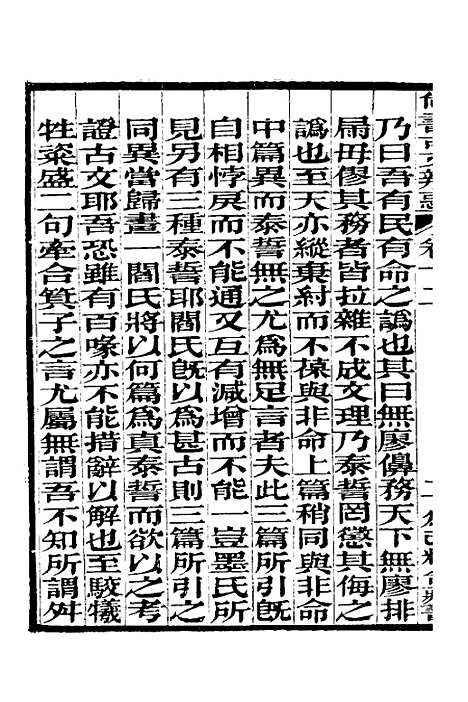 乃曰吾有民有命之譌也其曰無廖儤務天下無廖排
扄毋僇其務者皆拉雜不成文理乃泰誓罔懲其侮之
譌也至天亦縱棄紂而不葆與非命上篇稍同與非命
中篇異而泰誓無之尤爲無足言者夫此三篇所引旣
自相悖戾而不能通又互有減增而不能一豈墨氏所
見另有三種泰誓耶閻氏旣以爲甚古則三篇所引之
同異當歸畫一閻氏將以何篇爲真泰誓而欲以之考
證古文耶吾恐雖有百喙亦不能措辭以解也至駁犧
牲粢盛二句牽合箕子之言尤屬無謂吾不知所謂舛